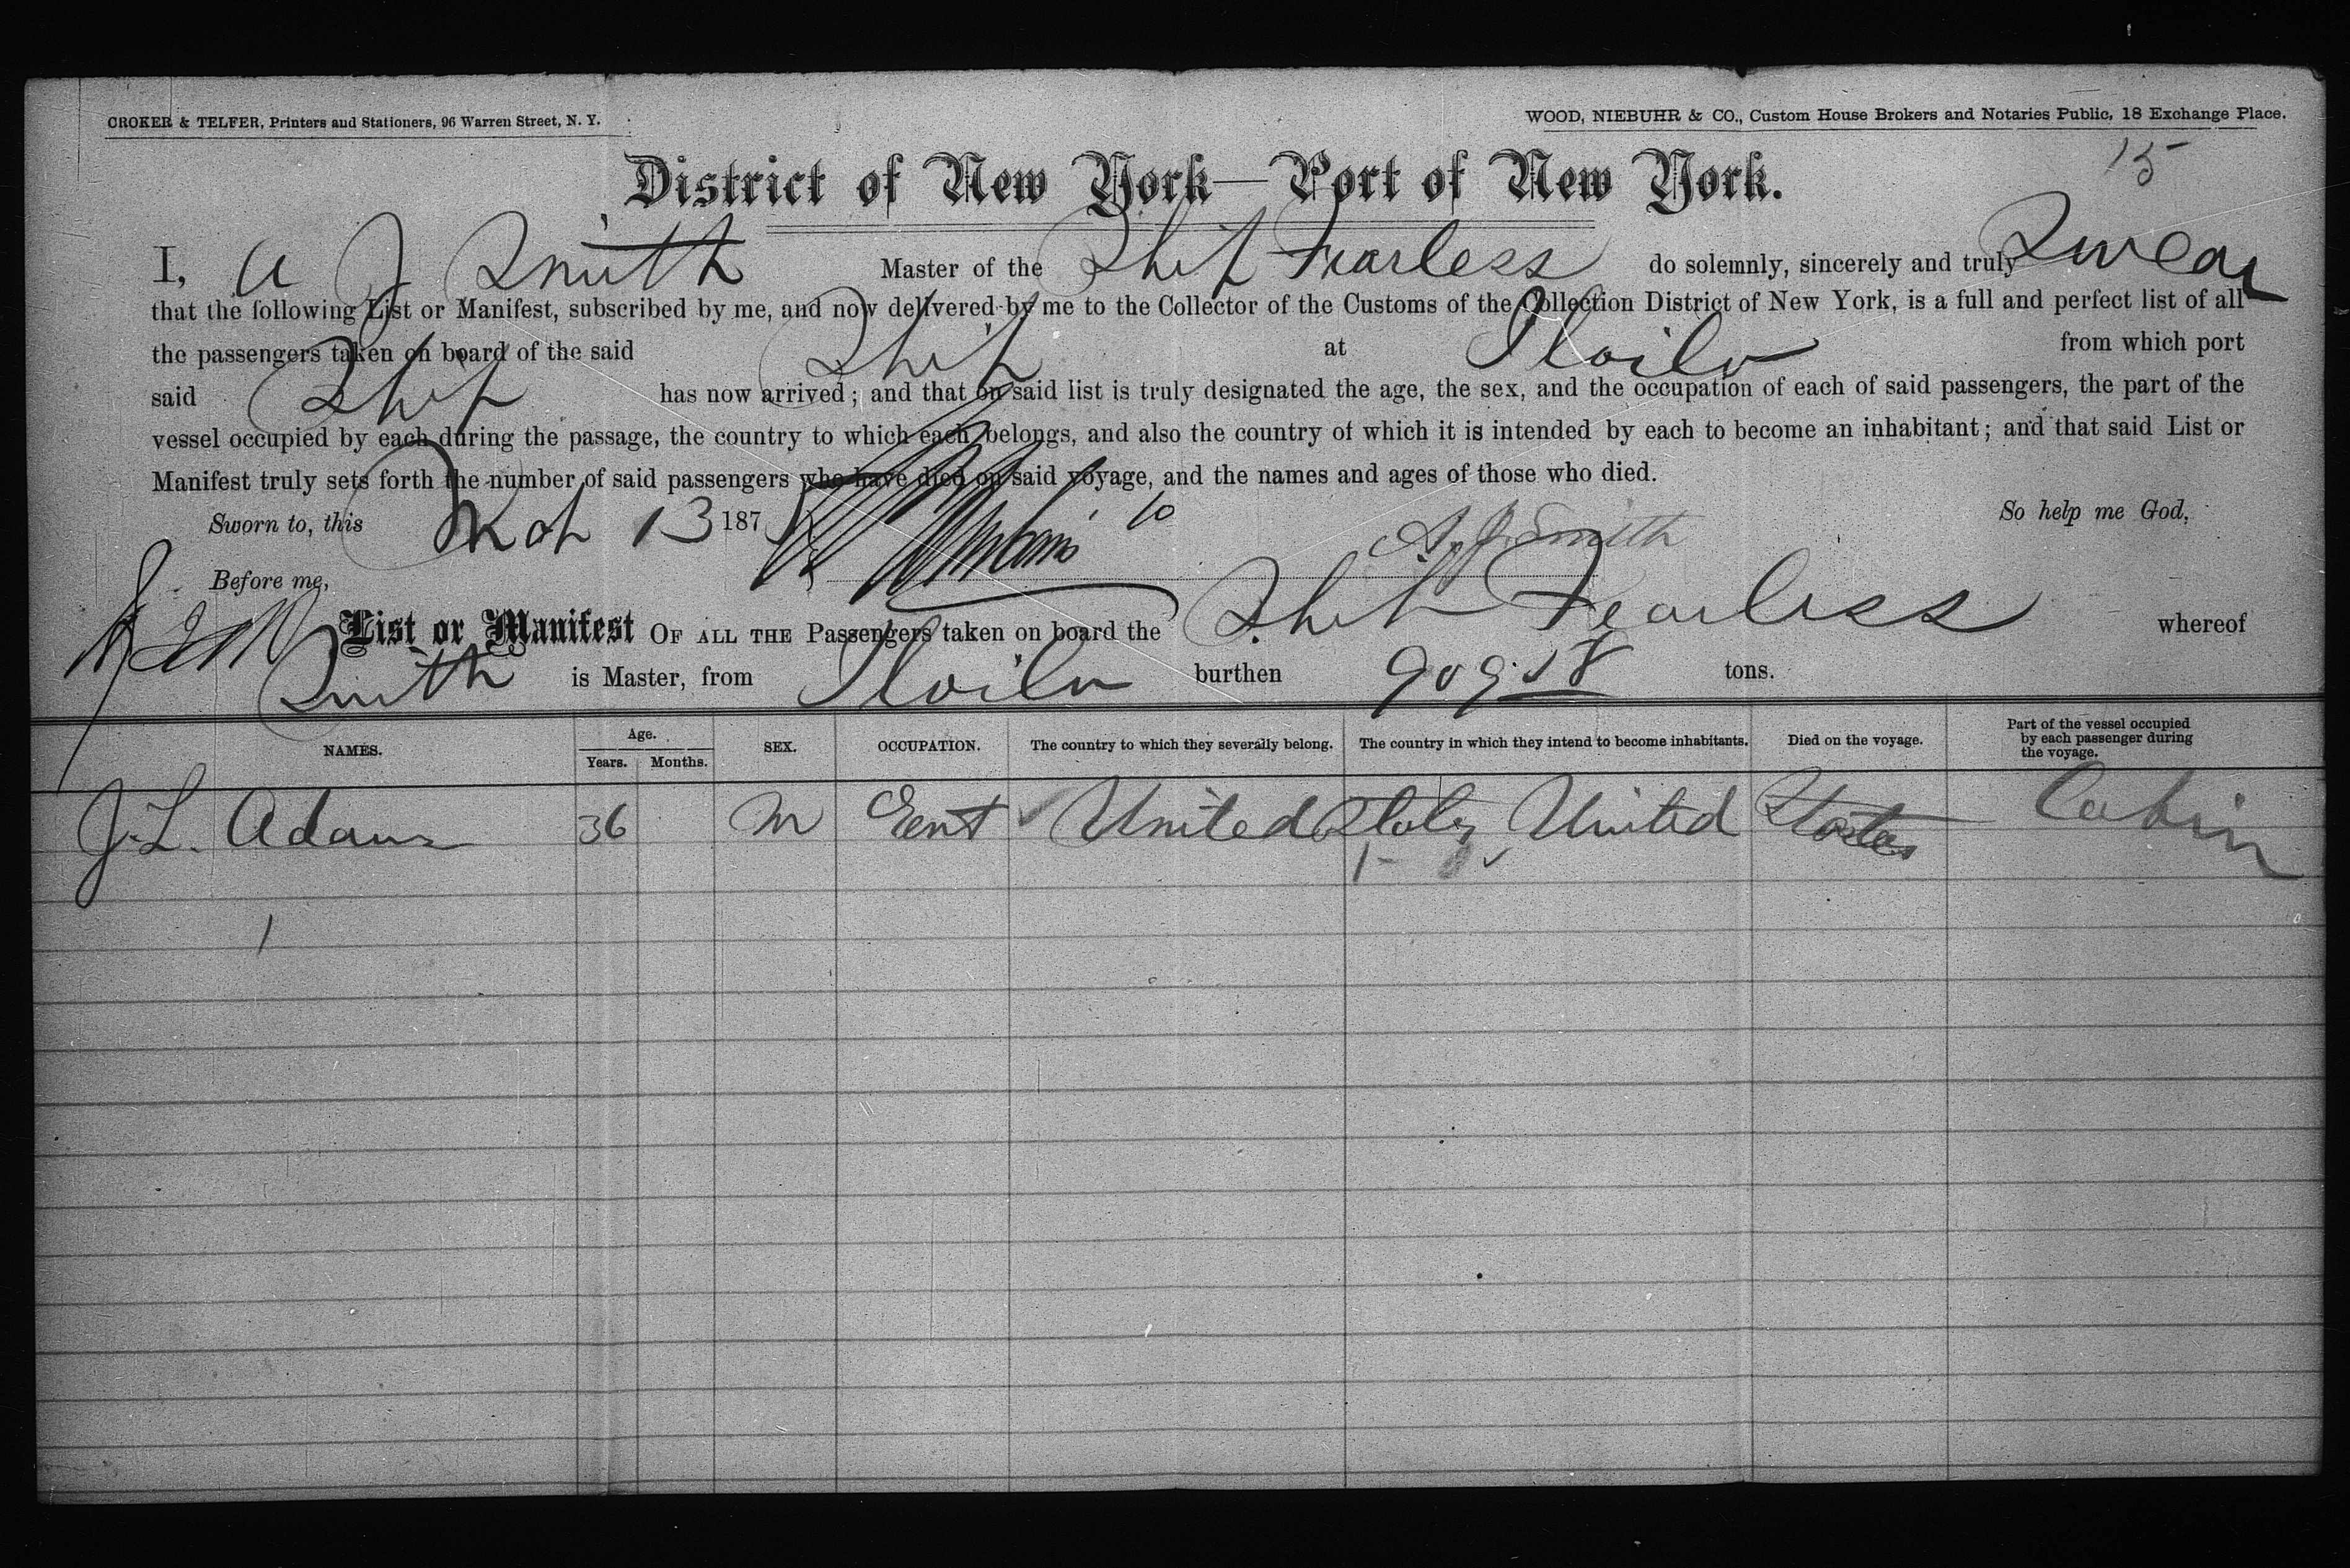 CROKER & TELFER, Printers and Stationers, 96 Warren Street, N. Y.
WOOD, NIEBUHR & CO., Custom House Brokers and Notaries Public, 18 Exchange Place.
15
District of New York—Port of New York.
I, A J Smith Master of the Ship Fearless do solemnly, sincerely and truly Swear
that the following List or Manifest, subscribed by me, and now delivered by me to the Collector of the Customs of the Collection District of New York, is a full and perfect list of all
the passengers taken on board of the said Ship at Iloilo from which port
said Ship has now arrived; and that on said list is truly designated the age, the sex, and the occupation of each of said passengers, the part of the
vessel occupied by each during the passage, the country to which each belongs, and also the country of which it is intended by each to become an inhabitant; and that said List or
Manifest truly sets forth the number of said passengers who have died on said voyage, and the names and ages of those who died.
Sworn to, this Mch 13 187 So help me God,
A. J. Smith
Before me,
List or Manifest OF ALL THE Passengers taken on board the Ship Fearless whereof
Smith is Master, from Iloilo burthen 909.18 tons.
NAMES. Age. Years. Months. SEX. OCCUPATION. The country to which they severally belong. The country in which they intend to become inhabitants. Died on the voyage. Part of the vessel occupied by each passenger during the voyage.
J. L. Adams 36 M Gent United States United States Cabin
1